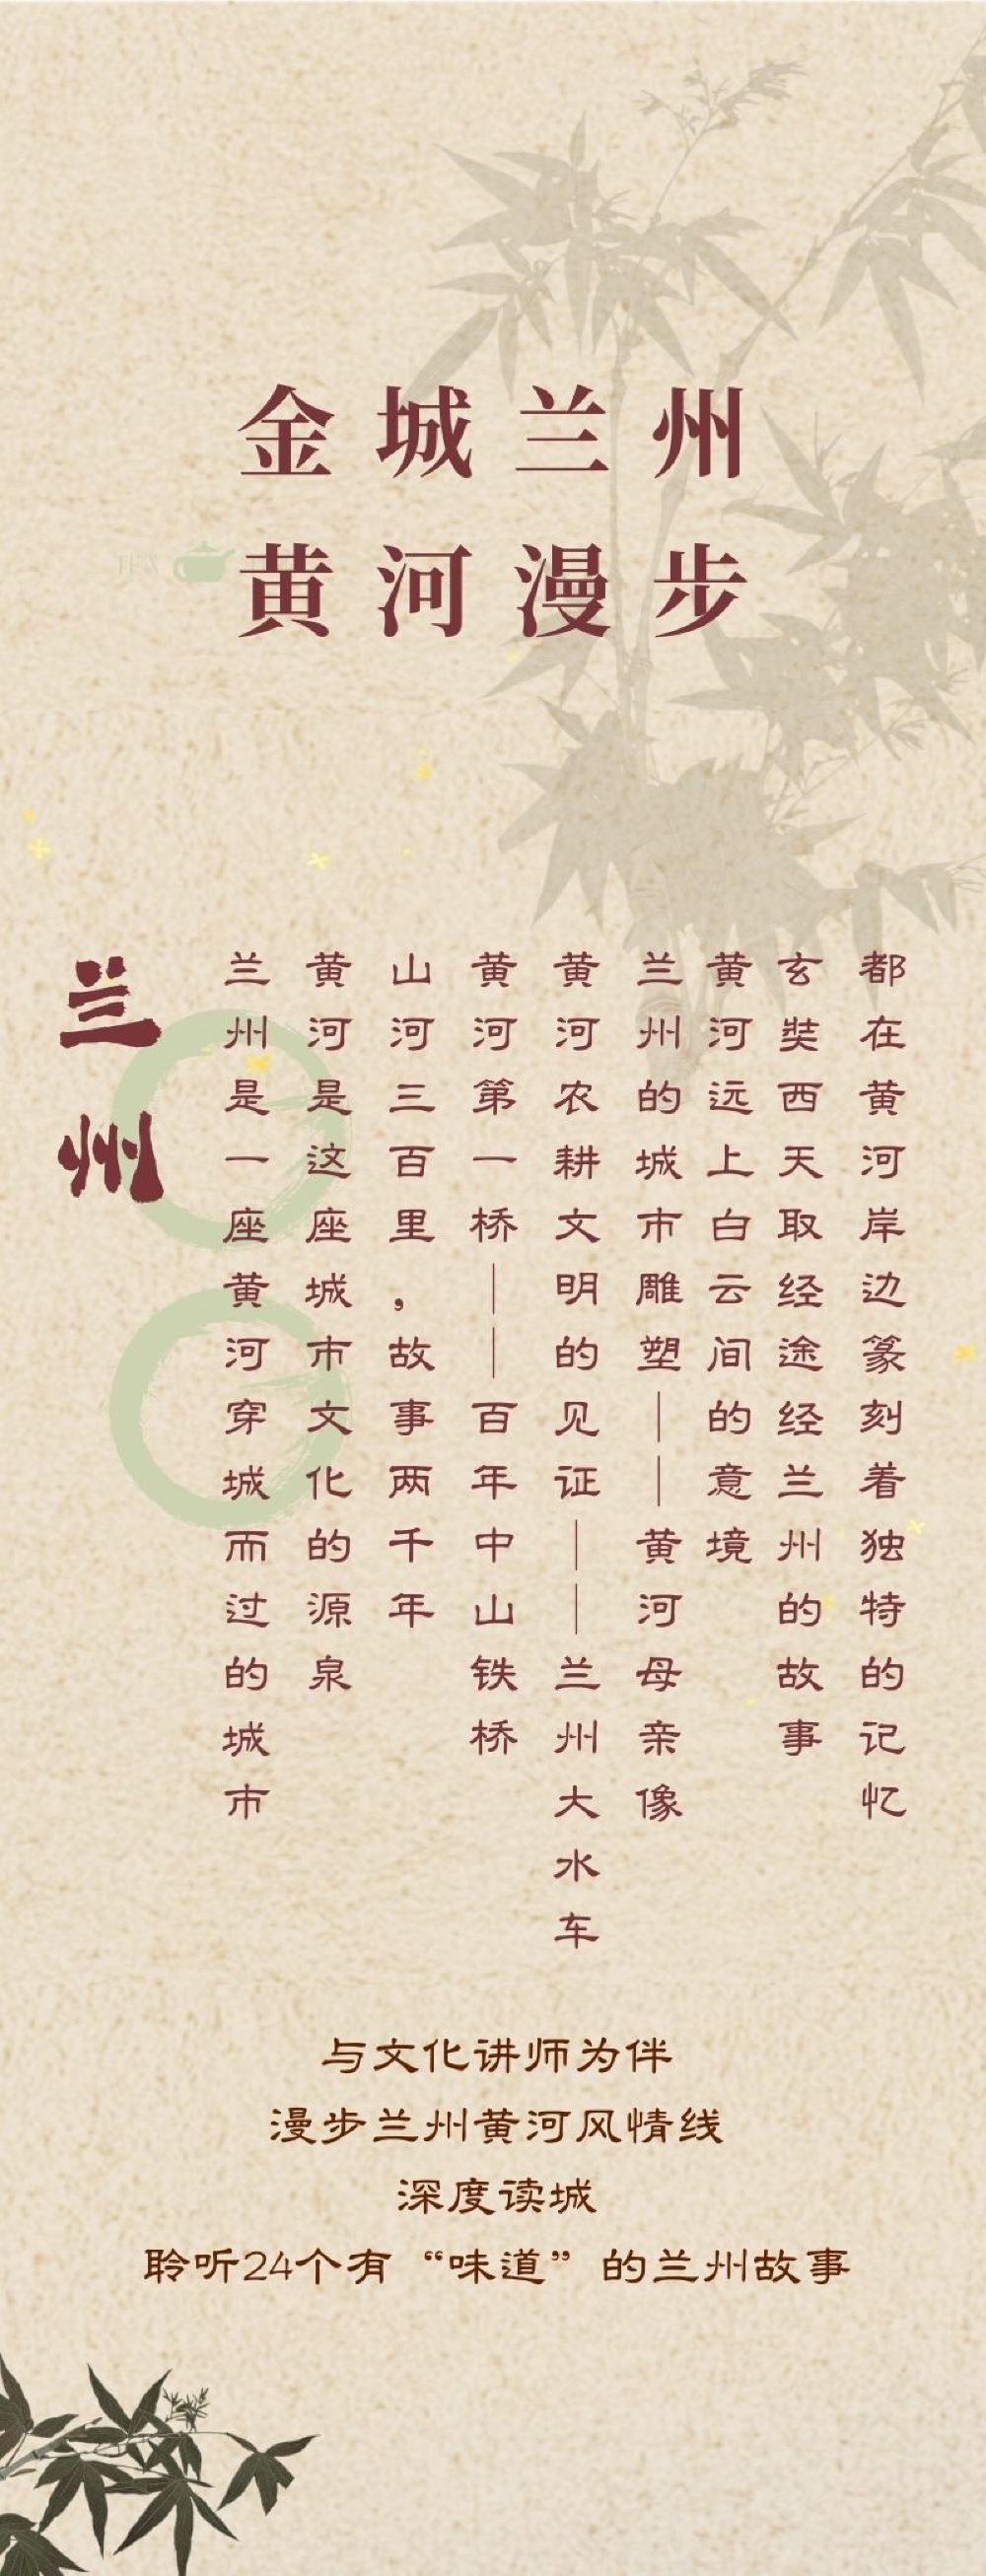 金城兰州
黄河漫步
TEA
兰州
兰州是一座黄河穿城而过的城市
黄河是这座城市文化的源泉
山河三百里，故事两千年
黄河第一桥——百年中山铁桥
黄河农耕文明的见证——兰州大水车
兰州的城市雕塑——黄河母亲像
黄河远上白云间的意境
玄奘西天取经途经兰州的故事
都在黄河岸边篆刻着独特的记忆
与文化讲师为伴
漫步兰州黄河风情线
深度读城
聆听24个有“味道”的兰州故事